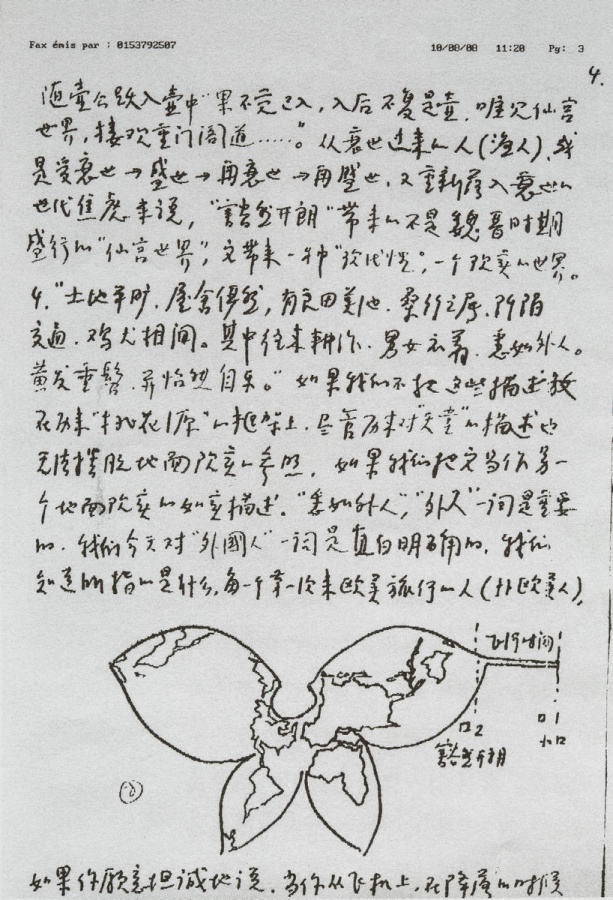 Fax émis par : 0153792507 10/08/08 11:20 Pg: 3
4.
随壶公跃入壶中"果不觉已入,入后不复是壶,唯见仙宫
世界,楼观重门阁道……"。从衰世过来的人(渔人),或
是受衰世→盛世→再衰世→再盛世,又重新落入衰世的
世代焦虑来说,"豁然开朗"带来的不是魏晋时期
盛行的"仙宫世界",它带来一种"现代性",一个现实的世界。
4."土地平旷,屋舍俨然,有良田美池,桑竹之属,阡陌
交通,鸡犬相闻。其中往来耕作,男女衣着,悉如外人。
黄发垂髫,并怡然自乐。"如果我们不把这些描述放
在历来"桃花源"的框架上,尽管历来对"天堂"的描述也
无法摆脱地面现实的参照,如果我们把它当作另一
个地面现实的如实描述。"悉如外人","外人"一词是重要
的,我们今天对"外國人"一词是直白明确的,我们
知道所指的是什么,每一个第一次来欧美旅行的人(非欧美人),
飞行时间
口2
豁然开朗
口1
小口
如果你愿意坦诚地说,当你从飞机上,在降落的时候